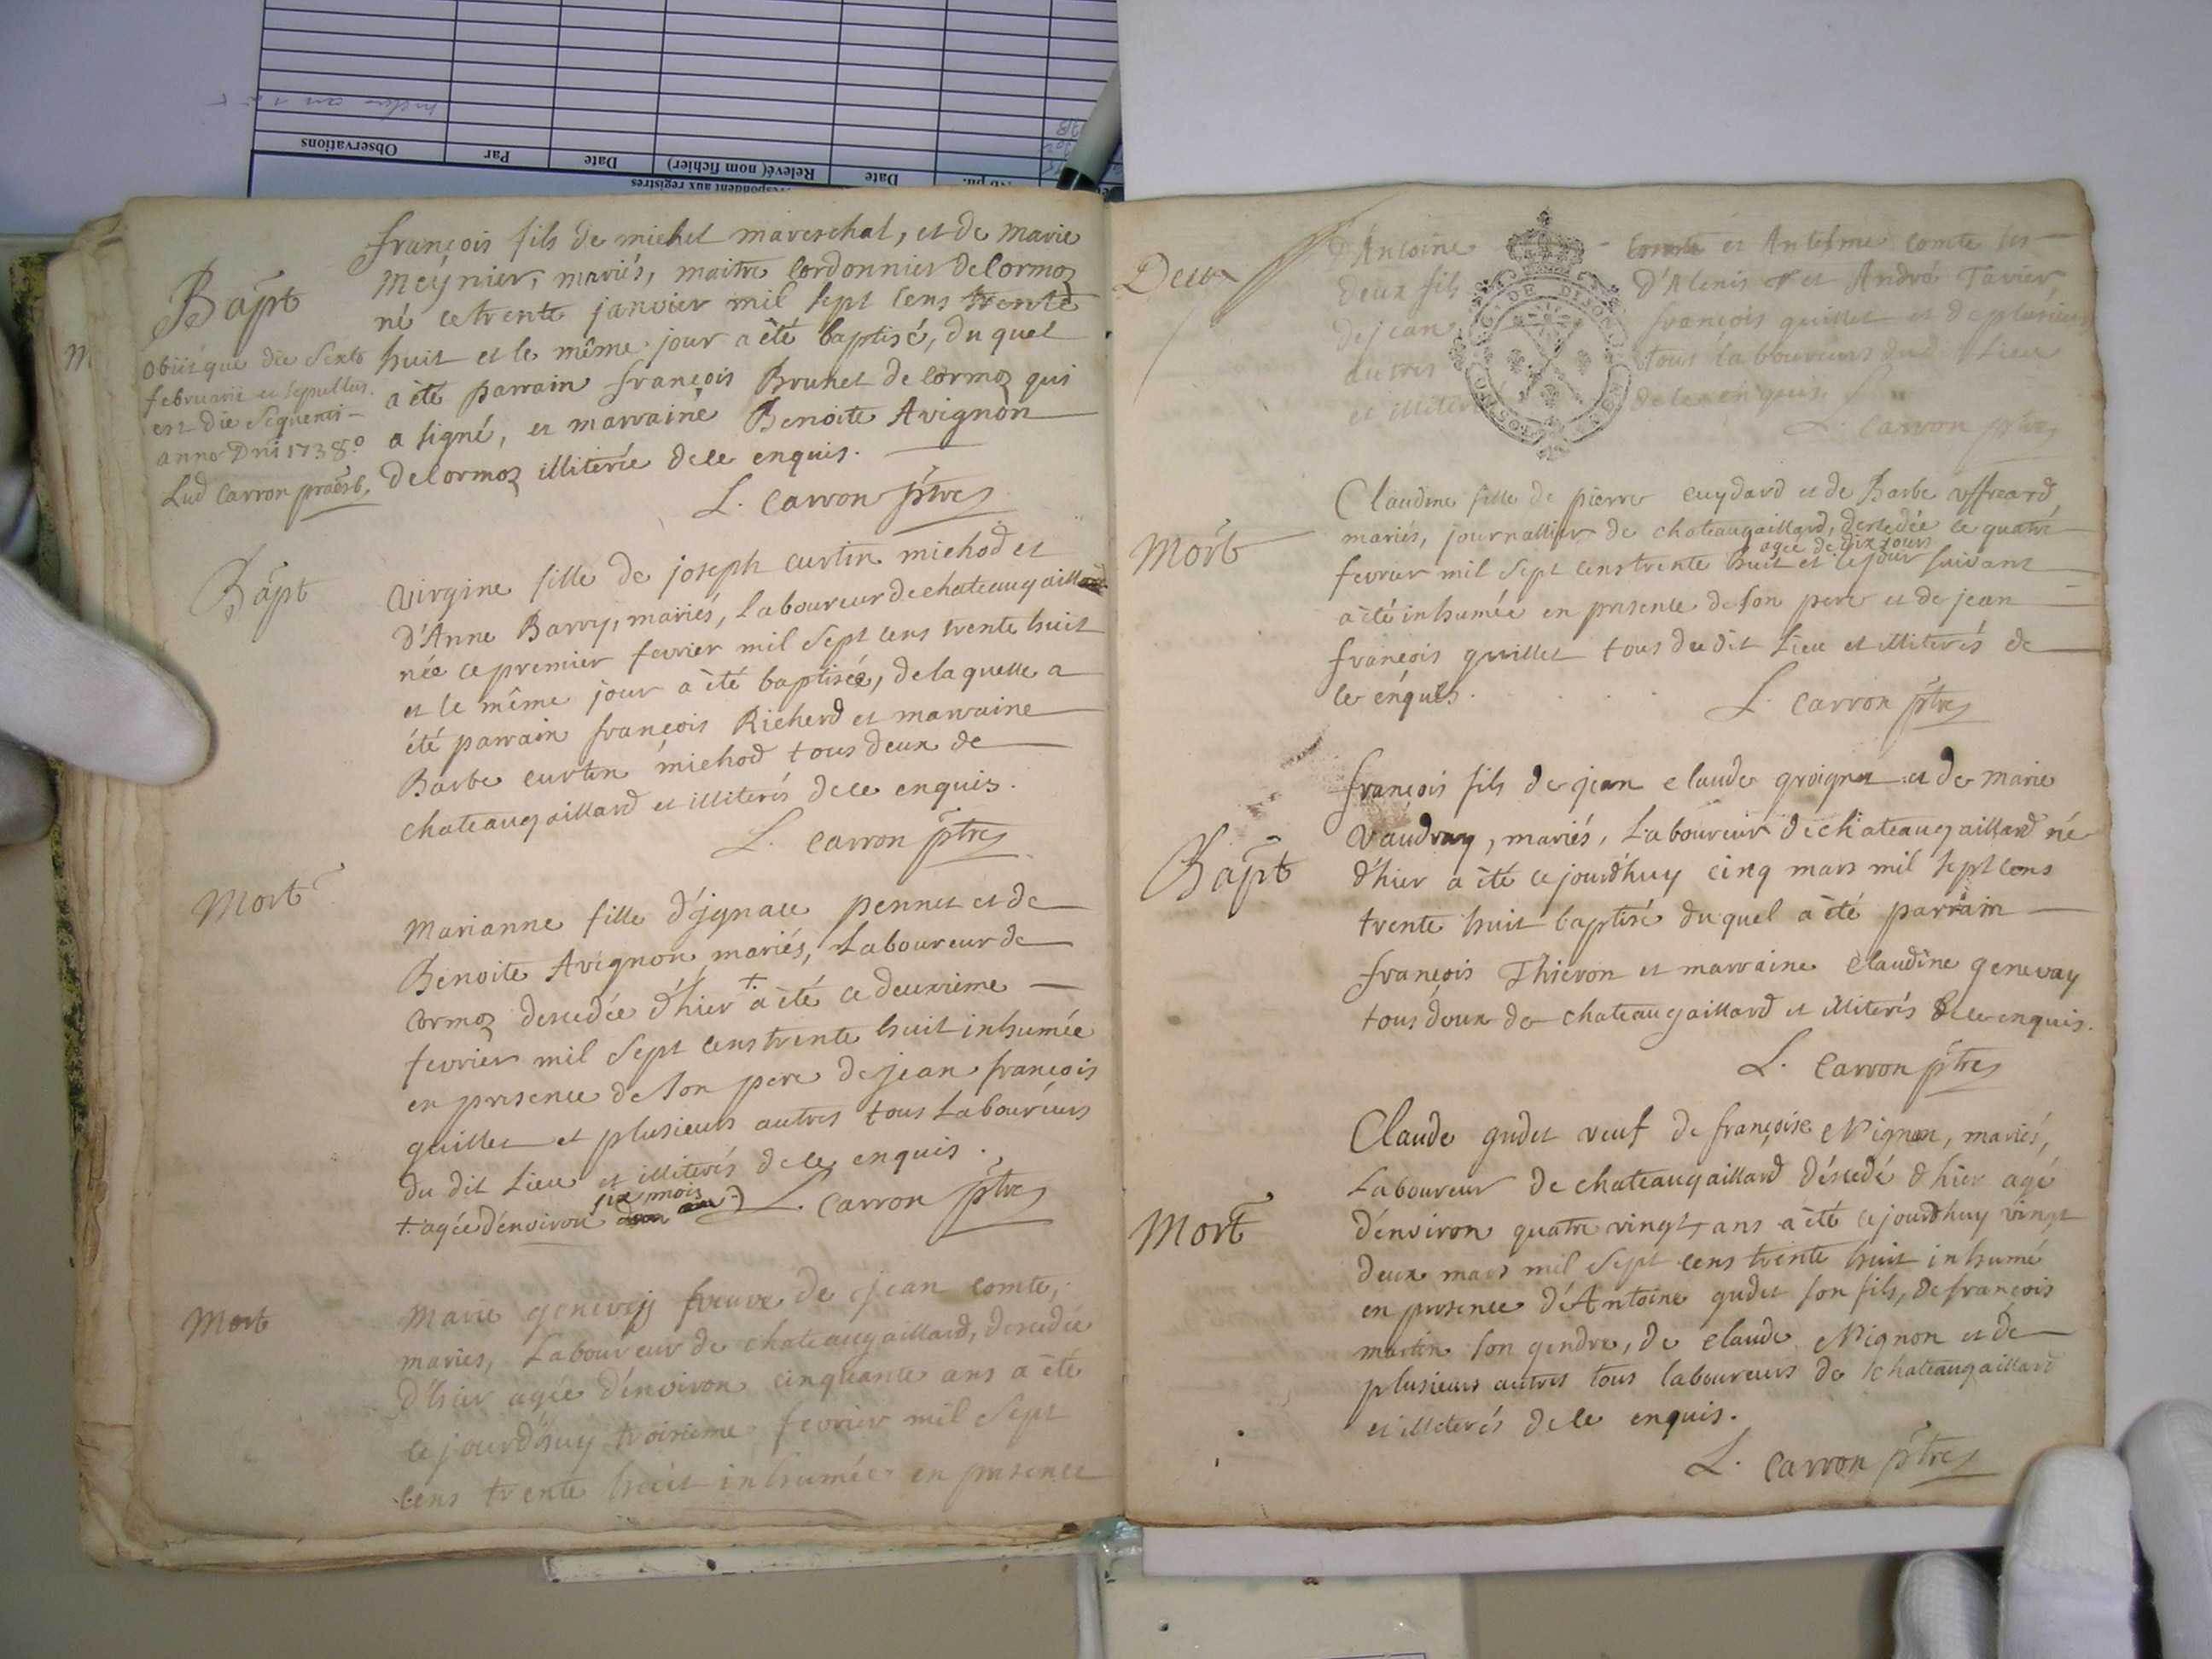 Observations
Par
Date
Relevé( nom fichier)
Date
respondent aux registres
Bapt
françois fils de michel mareschal, et de marie
meÿnier, mariés, maitre Cordonnier de Cormoz
né ce trente janvier mil sept cens trente
huit et le même jour a été baptisé, du quel
a été parrain françois Brunet de Cormoz qui
a signé, et marraine Benoite Avignon
de Cormoz illiterée de ce enquis.
L. Carron ptre
obiit que die Sexto
februarii et sepultus
est die Sequenti
anno Dni 1738°
Lud Carron praesb.
Bapt
Virgine fille de joseph curtin miehod et
d'Anne Barry, mariés, Laboureur de chateaugaillard
née ce premier fevrier mil Sept cens trente huit
et le même jour a été baptisée, de laquelle a
été parrain françois Richerd et marraine
Barbe curtin miehod tous deux de
chateaugaillard et illiterés de ce enquis.
L. Carron ptre
Mort
Marianne fille d'jgnace pennet et de
Benoite Avignon mariés, Laboureur de
Cormoz descedée d'hier + a été ce deuxieme
fevrier mil Sept cens trente huit inhumée
en presence de Son pere de jean françois
guillet et plusieurs autres tous Laboureurs
du dit Lieu et illiterés de ce enquis.
+ agée d'environ six mois L. Carron ptre
Mort
Marie genevey veuve de jean comte,
mariés, Laboureur de chateaugaillard, descedée
d'hier agée d'environ cinquante ans a été
ce jourd'huy troisieme fevrier mil Sept
cens trente huit inhumée en presence
d'Antoine comte et Antelme comte ses
deux fils d'Alexis et André Tavier
de jean françois guillet et de plusieurs
autres tous laboureurs dud Lieu
et illiterés de ce enquis
L. Carron ptre
Mort
Claudine fille de pierre cuydard et de Barbe uffreard
mariés, journallier de chateaugaillard, descedée le quatre
agée de dix jours
fevrier mil Sept cens trente huit et le jour suivant
a été inhumée en presence de Son pere et de jean
françois guillet tous du dit Lieu et illiterés de
ce enquis.
L. Carron ptre
Bapt
françois fils de jean claude groignet et de marie
Vaudray, mariés, Laboureur de chateaugaillard né
d'hier a été ce jourdhuy cinq mars mil sept cens
trente huit baptisé du quel a été parrain
françois Thieron et marraine Claudine genevay
tous deux de chateaugaillard et illiterés de ce enquis.
L. Carron ptre
Mort
Claude gudet veuf de françoise Nignon, mariés,
Laboureur de chateaugaillard déscedé d'hier agé
d'environ quatre vingt ans a été ce jourdhuy vingt
deux mars mil Sept cens trente huit inhumé
en presence d'Antoine gudet son fils, de françois
martin son gendre, de claude Nignon et de
plusieurs autres tous laboureurs de chateaugaillard
et illiterés de ce enquis.
L. Carron ptre